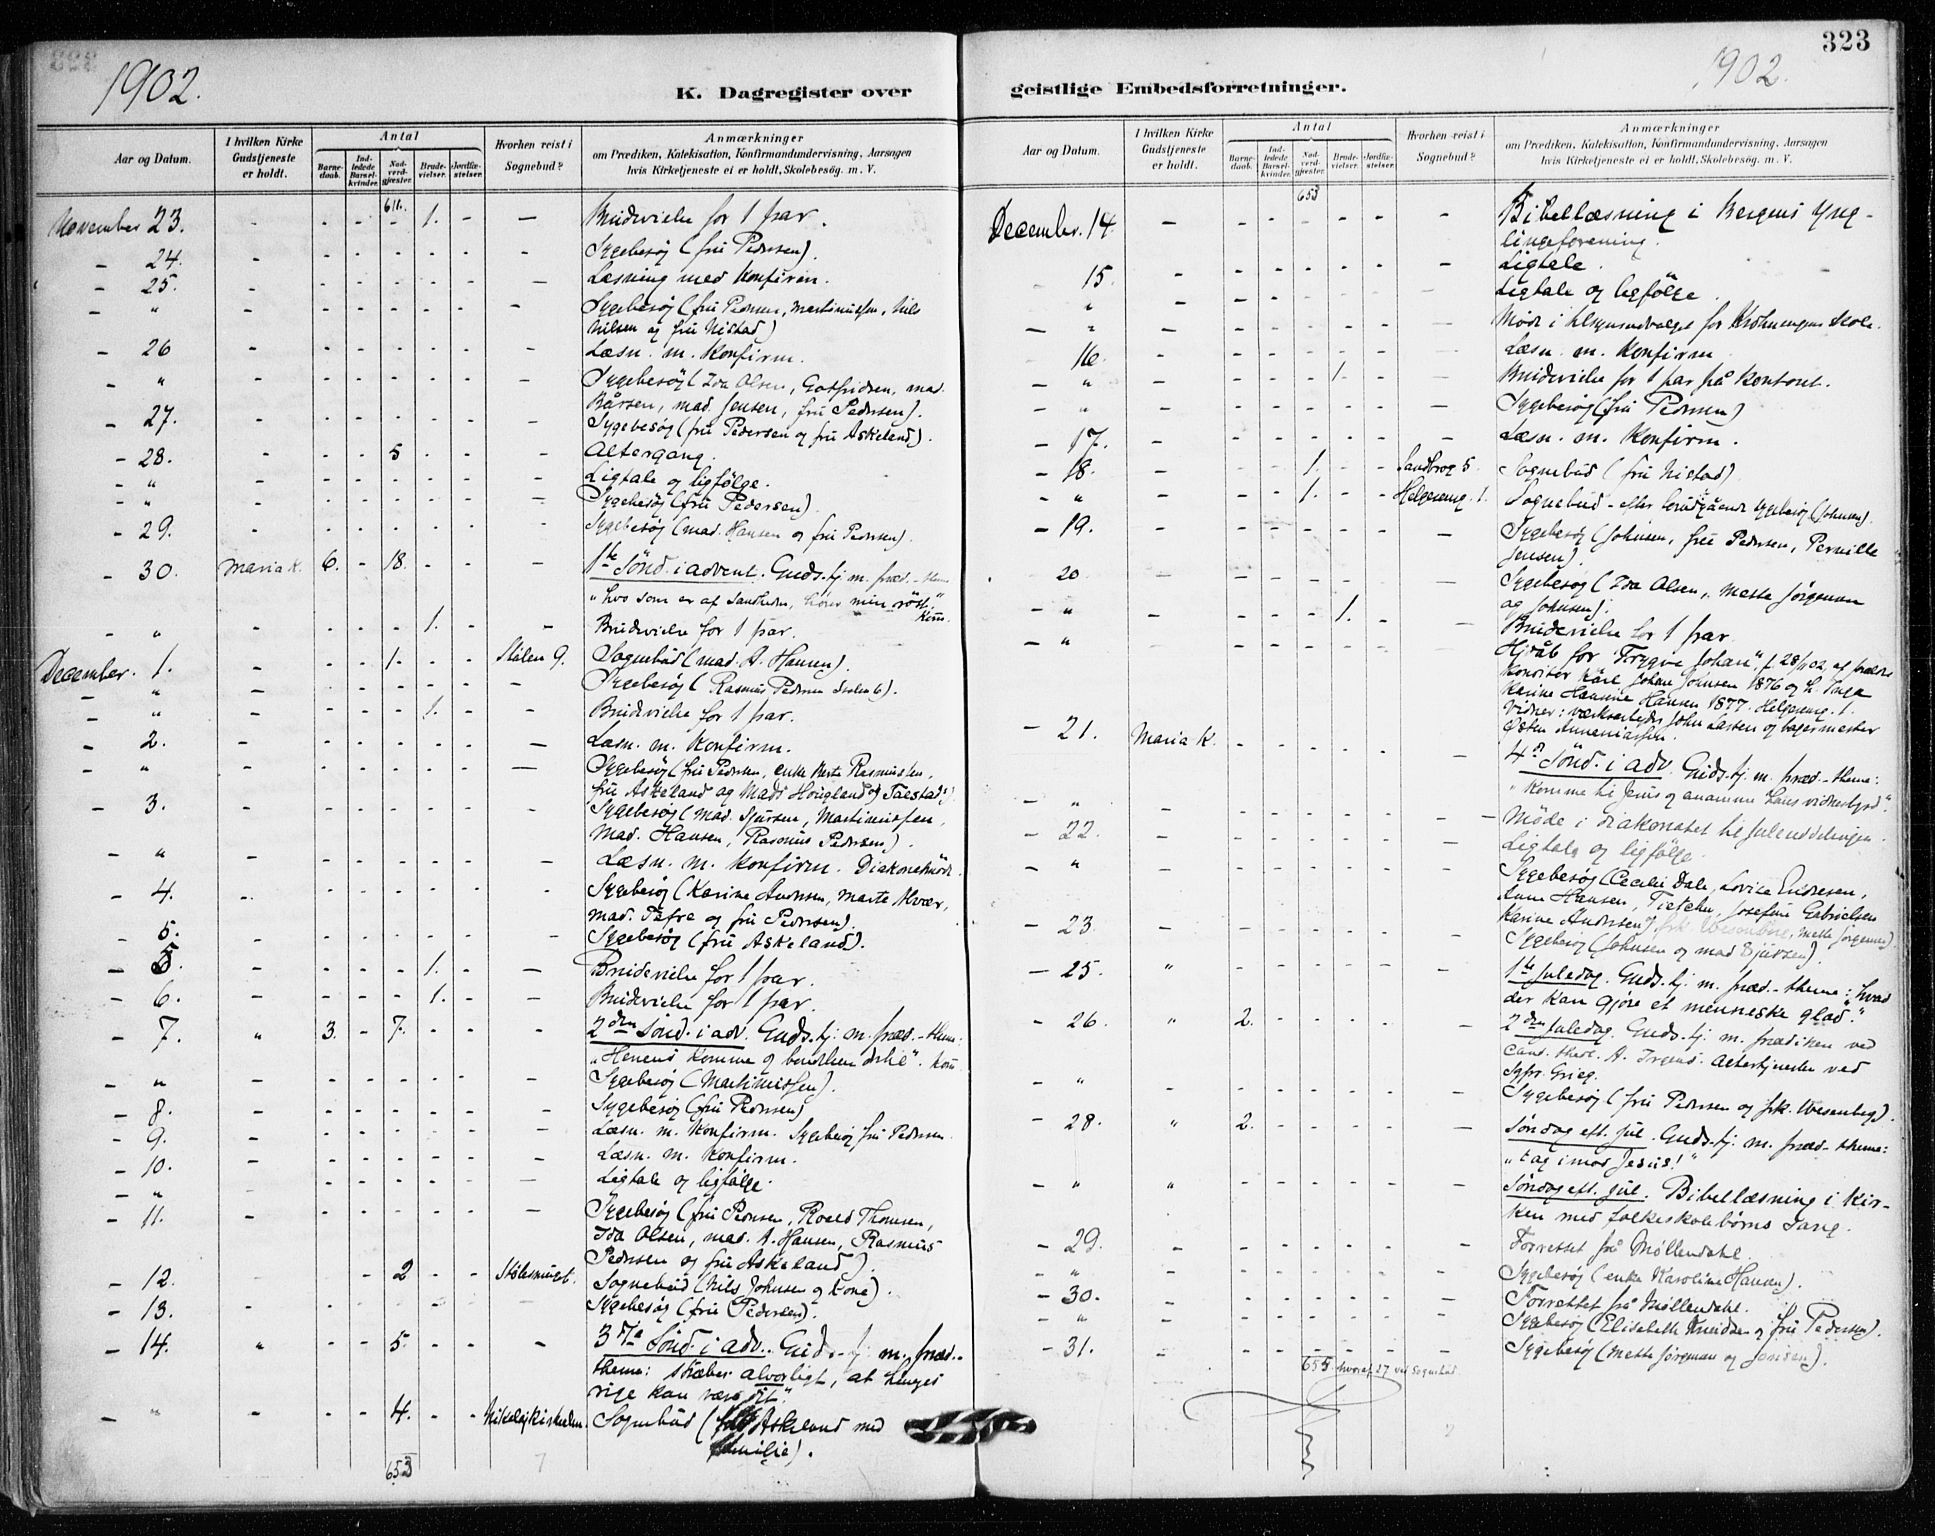 1902.
K. Dagregister over
Aar og Datum.
I hvilken Kirke Gudstjeneste er holdt.
Antal
Barnedaab.
Indledede Barselkvinder.
Nadverdgjæster.
Brudevielser.
Jordfæstelser.
Hvorhen reist i Sognebud?
Anmærkninger
om Prædiken, Katekisation, Konfirmandundervisning, Aarsagen
hvis Kirketjeneste ei er holdt, Skolebesøg. m. V.
November 23. - - - - 1. - - Brudevielse for 1 par.
- 24. - - - - - - - Sygebesøg (fru Pedersen).
- 25. - - - - - - - Læsning med Konfirm.
- " - - - - - - - Sygebesøg (fru Pedersen, Martinussen, Nils
Nilsen og fru Nistad)
- 26 - - - - - - - Læsn. m. Konfirm.
- " - - - - - - - Sygebesøg (Ida Olsen, Gotfredsen, mad.
Bårsen, mad. Jensen, fru Pedersen).
- 27. - - - - - - - Sygebesøg (fru Pedersen og fru Askeland).
- 28. - - - 5 - - - Altergang.
- " - - - - - - - Ligtale og ligfølge.
- " - - - - - - - Sygebesøg (fru Pedersen).
- 29. - - - - - - - Sygebesøg (mad. Hansen og fru Pedersen).
- 30. Maria K. 6. - 18. - - - 1ste Sønd. i advent. Guds.tj. m. præd. - thema
"hvo som er af sandheden, hører min røst."
- " - - - - 1. - - Brudevielse for 1 par.
December. 1. - - - 1. - - Stølen 9. Sognebud (mad. A. Hansen).
- " - - - - - - - Sygebesøg (Rasmus Pedersen 6).
- " - - - - 1. - - Brudevielse for 1 par.
- 2. - - - - - - - Læsn. m. Konfirm.
- " - - - - - - - Sygebesøg (fru Pedersen, enke Rasmussen,
fru Askeland og Mads Hougland
- 3. - - - - - - - Sygebesøg (mad. Sjursen, Martinussen,
Mad. Hansen, Rasmus Pedersen).
- " - - - - - - - Læsn. m. Konfirm. Diakonatmøde.
- 4. - - - - - - - Sygebesøg (Karine Andersen, Marte
mad. og fru Pedersen).
- 5. - - - - - - - Sygebesøg (fru Askeland).
- 5. - - - - 1. - - Brudevielse for 1 par.
- 6. - - - - 1. - - Brudevielse for 1 par.
- 7. " 3. - 7. - - - 2den Sønd. i adv. Guds.tj. m. præd. - thema:
"Herrens komme og
- " - - - - - - - Sygebesøg (Martinussen).
- 8. - - - - - - - Sygebesøg (fru Pedersen)
- 9. - - - - - - - Læsn. m. Konfirm. Sygebesøg fru Pedersen.
- 10. - - - - - - - Læsn. m. Konfirm.
- " - - - - - - - Ligtale og ligfølge.
- 11. - - - - - - - Sygebesøg (fru Pedersen, Roald Thomsen,
Ida Olsen, mad. A. Hansen, Rasmus
Pedersen og fru Askeland).
- 12. - - - 2 - - Stølesmuget. Sognebud (Nils Johnsen og kone).
- 13. - - - - - - - Sygebesøg (fru Pedersen).
- 14. " - - 5. - - - 3die Sønd. i adv. Guds.tj. m. præd. -
thema: stræber alvorligt, at Herrens
rige kan være
- " - - - 4. - - Nikolaikirkealm. Sognebud (fru Askeland med
familie).
653
323
1902.
geistlige Embedsforretninger.
Aar og Datum.
I hvilken Kirke Gudstjeneste er holdt.
Antal
Barnedaab.
Indledede Barselkvinder.
Nadverdgjæster.
Brudevielser.
Jordfæstelser.
Hvorhen reist i Sognebud?
Anmærkninger
om Prædiken, Katekisation, Konfirmandundervisning, Aarsagen
hvis Kirketjeneste ei er holdt, Skolebesøg. m. V.
653
December. 14. - - - - - - - Bibellæsning i Bergens Yng-
lingeforening.
15. - - - - - - - Ligtale.
" - - - - - - - Ligtale og ligfølge.
- " - - - - - - - Møde i tilsynsudvalget for Krohnengens Skole.
16. - - - - - - - Læsn. m. Konfirm
- " - - - - 1. - - Brudevielse for 1 par på Kontoret.
- " - - - - - - - Sygebesøg (fru Pedersen)
- 17. - - - - - - - Læsn. m. Konfirm.
- 18. - - - 1. - - Sandbrog 5. Sognebud (fru Nistad)
- " - - - 1. - - Helgeseng. 1. Sognebud - efter forudgående sygebesøg (Johnsen).
- 19. - - - - - - - Sygebesøg (Johnsen, fru Pedersen, Pernille
Jensen).
20 - - - - - - - Sygebesøg (Ida Olsen, Mette Jørgensen
og Johnsen).
- " - - - - 1. - - Brudevielse for 1 par.
- " - - - - - - - Hj.dåb for "Trygve Johan", f. 28/ 02, af forældre
Konditor Karl Johan Johnsen 1876 og h. Inga
Karine Hansine Hansen 1877. Helgeseng. 1.
Vidner: værksarbeider John Larsen og bagermester
Østen Annaniassen.
- 21. Maria K. - - - - - - 4de Sønd. i adv. Guds.tj. m. præd. - thema:
"Komme til Jesus og anamme hans vidnesbyrd."
- " - - - - - - - Møde i diakonatet til juleuddelingen.
- 22. - - - - - - - Ligtale og ligfølge.
" - - - - - - - Sygebesøg (Cecilie Dale, Lovise Endresen,
Anne Hansen, Tietchen, Josefine Gabrielsen
Karine Andersen, frk. Wesenberg, Mette Jørgensen).
- 23. - - - - - - - Sygebesøg (Johnsen og mad Sjursen).
- 25. " - - - - - - 1ste Juledag. Guds.tj. m. præd. - thema: "hvad
der kan gjøre et menneske glad."
- 26. " 2. - - - - - 2den Juledag. Guds.tj. m. prædiken ved
cand. theol. A. Irgens. Altertjenesten ved
Sgpr. Grieg.
- " - - - - - - - Sygebesøg (fru Pedersen og frk. Wesenberg).
- 28. " 2. - - - - - Søndag eft. jul. Guds.tj. m. præd. - thema:
"tag imod Jesus!"
- " " - - - - - - Søndag eft. jul. Bibellæsning i Kir-
ken med folkeskolebørns sang.
- 29. - - - - - - - Forrettet på Møllendahl.
- " - - - - - - - Sygebesøg (enke Karoline Hansen).
- 30. - - - - - - - Forrettet på Møllendahl.
- " - - - - - - - Sygebesøg (Elisabeth og fru Pedersen).
- 31. - - - - - - - Sygebesøg (Mette Jørgensen og Jensen).
655 hvoraf 27 ved Sognebud